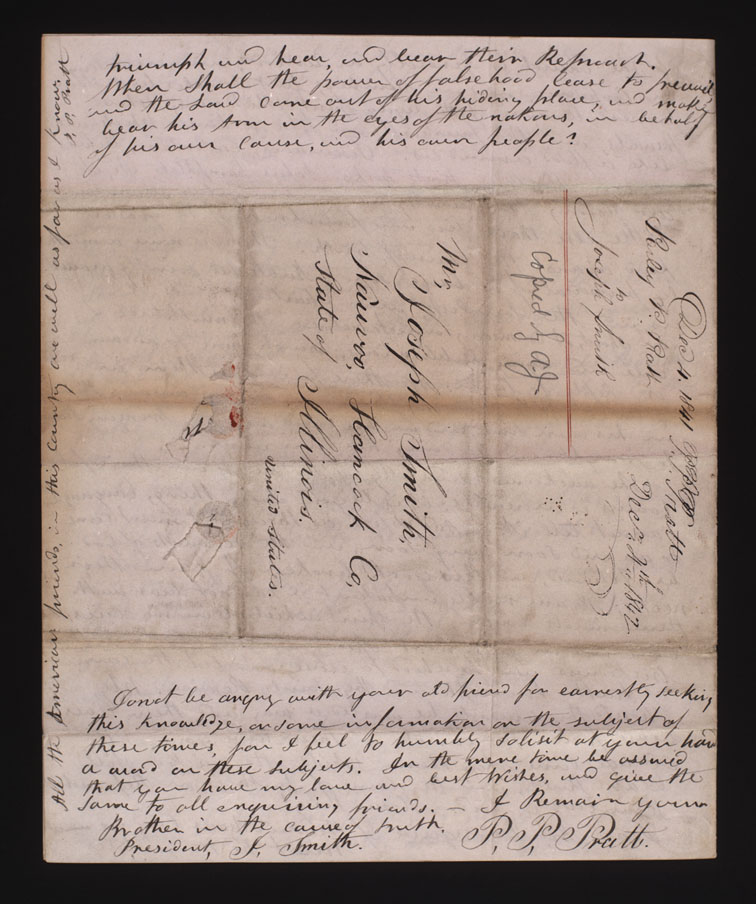 triumph and hear, and bear their Reproach.
When Shall the power of falsehood cease to prevail
and the Lord come out of his hiding place, and make
bear his Arm in the eyes of the nations, in behalf
of his own Cause, and his own people?
Mr, Joseph Smith,
Nauvoo, Hancock Co,
State of Illinois.
United States.
Copied by AJ
Dec. 4. 1841
Parley P. Pratt
to
Joseph Smith
P. Pratt
Dec. 4th 1842
Donot be angry with your old friend for earnestly seeking
this knowledge, or some information on the subject of
these times, for I feel to humbly solisit at your hand
a word on these subjects. In the mene time be assured
that you have my love and best Wishes, and give the
Same to all enquiring friends. — I Remain your
Brother in the cause of truth.
President, J, Smith. P, P, Pratt.
All the American friends, in this County are well as far as I know.
P. P. Pratt